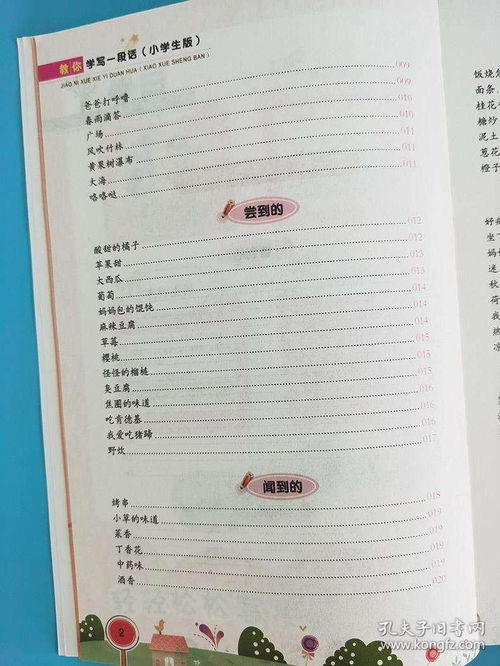 教你学写一段话（小学生版）
JIAO NI XUE XIE YI DUAN HUA（XIAO XUE SHENG BAN）
爸爸打呼噜 009
春雨滴答 009
广场 010
风吹竹林 011
黄果树瀑布 011
大海 011
咯咯哒 011
尝到的
酸甜的橘子 012
苹果甜 012
大西瓜 013
葡萄 013
妈妈包的馄饨 014
麻辣豆腐 014
草莓 014
樱桃 015
怪怪的榴梿 015
臭豆腐 015
焦圈的味道 016
吃肯德基 016
我爱吃猪蹄 016
野炊 017
闻到的
烤串 018
小草的味道 018
菜香 019
丁香花 019
中药味 019
酒香 020
2
饭烧焦
面条
桂花
糖炒
泥土
葱花
橙子
坐
妈妈
迷
荷
我
孔夫子旧书网
www.kongfz.com